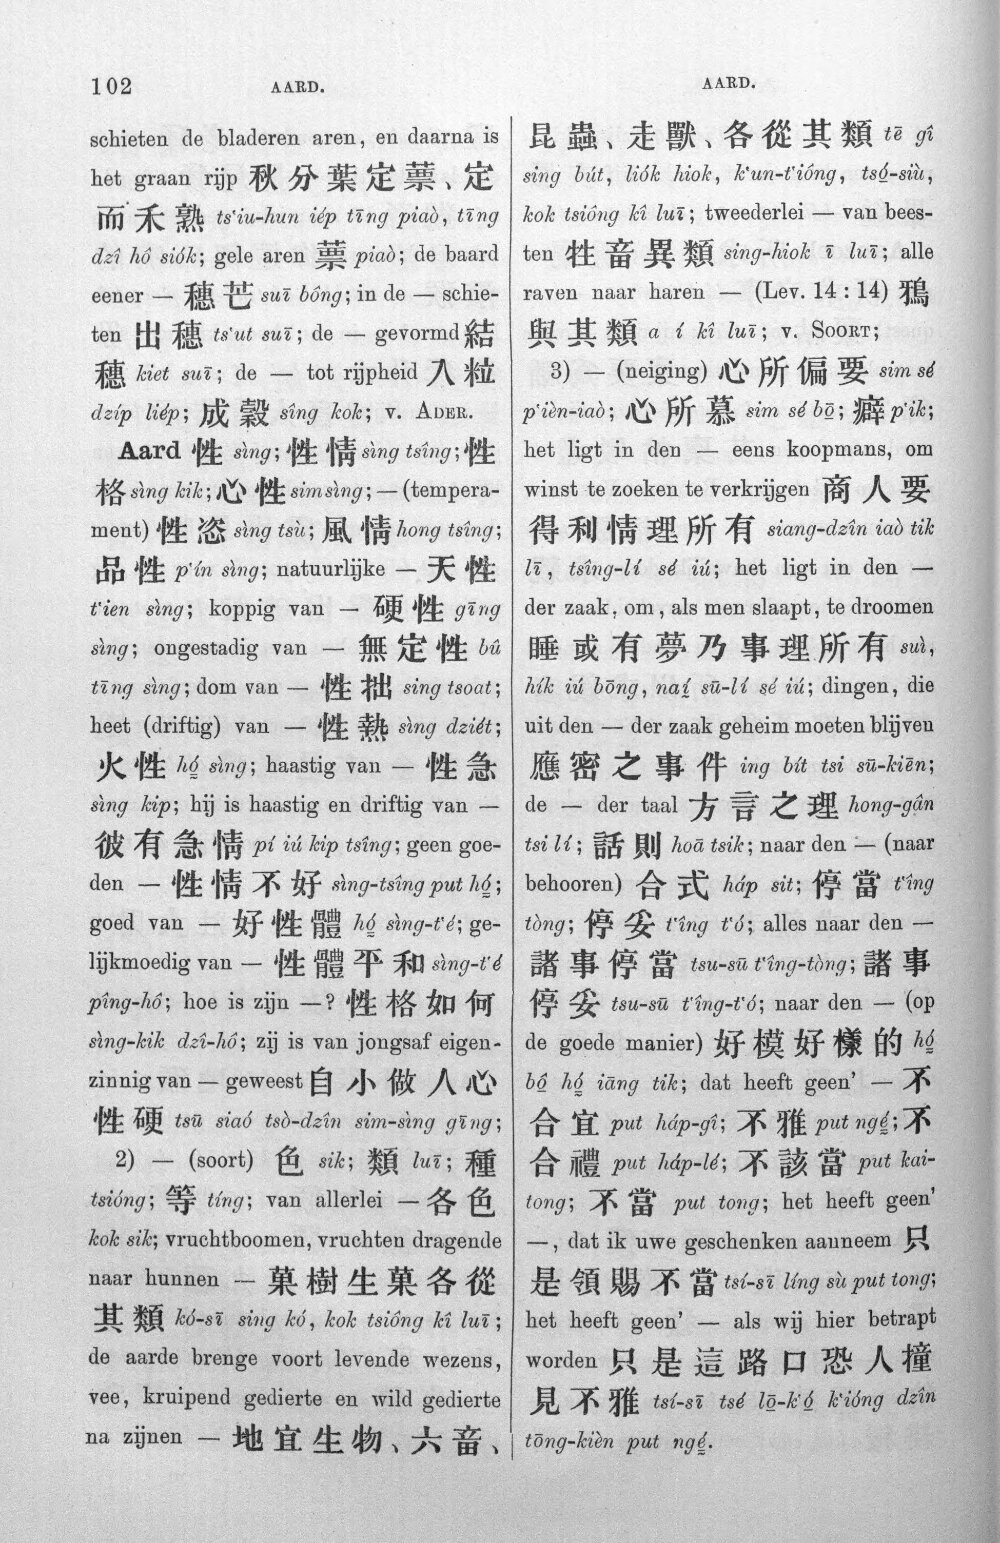 102 AARD.
schieten de bladeren aren, en daarna is
het graan rijp 秋分葉定藁、定
而禾熟 tsʻiu-hun iép tīng piaò, tīng
dzî hô siók; gele aren 藁 piaò; de baard
eener — 穗芒 suī bông; in de — schie-
ten 出穗 tsʻut suī; de — gevormd 結
穗 kiet suī; de — tot rijpheid 入粒
dzíp liép; 成穀 sîng kok; v. ADER.
Aard 性 sìng; 性情 sìng tsîng; 性
格 sìng kik; 心性 sim sìng; — (tempera-
ment) 性恣 sìng tsù; 風情 hong tsîng;
品性 pʻín sìng; natuurlijke — 天性
tʻien sìng; koppig van — 硬性 gīng
sìng; ongestadig van — 無定性 bû
tīng sìng; dom van — 性拙 sing tsoat;
heet (driftig) van — 性熱 sìng dziét;
火性 hó̤ sìng; haastig van — 性急
sìng kip; hij is haastig en driftig van —
彼有急情 pí iú kip tsîng; geen goe-
den — 性情不好 sìng-tsîng put hó̤;
goed van — 好性體 hó̤ sìng-tʻé; ge-
lijkmoedig van — 性體平和 sìng-tʻé
pîng-hô; hoe is zijn —? 性格如何
sìng-kik dzî-hô; zij is van jongsaf eigen-
zinnig van — geweest 自小做人心
性硬 tsū siaó tsò-dzîn sim-sìng gīng;
2) — (soort) 色 sik; 類 luī; 種
tsióng; 等 tíng; van allerlei — 各色
kok sik; vruchtboomen, vruchten dragende
naar hunnen — 菓樹生菓各從
其類 kó-sī sing kó, kok tsiông kî luī;
de aarde brenge voort levende wezens,
vee, kruipend gedierte en wild gedierte
na zijnen — 地宜生物、六畜、
AARD.
昆蟲、走獸、各從其類 tē gî
sing bút, liók hiok, kʻun-tʻióng, tsó̱-siù,
kok tsiông kî luī; tweederlei — van bees-
ten 牲畜異類 sing-hiok ī luī; alle
raven naar haren — (Lev. 14 : 14) 鴉
與其類 a í kî luī; v. SOORT;
3) — (neiging) 心所偏要 sim sé
pʻièn-iaò; 心所慕 sim sé bō̱; 癖 pʻik;
het ligt in den — eens koopmans, om
winst te zoeken te verkrijgen 商人要
得利情理所有 siang-dzîn iaò tik
lī, tsîng-lí sé iú; het ligt in den —
der zaak, om, als men slaapt, te droomen
睡或有夢乃事理所有 suì,
hík iú bōng, naí̤ sū-lí sé iú; dingen, die
uit den — der zaak geheim moeten blijven
應密之事件 ing bít tsi sū-kiēn;
de — der taal 方言之理 hong-gân
tsi lí; 話則 hoā tsik; naar den — (naar
behooren) 合式 háp sit; 停當 tʻîng
tòng; 停妥 tʻîng tʻó; alles naar den —
諸事停當 tsu-sū tʻîng-tòng; 諸事
停妥 tsu-sū tʻîng-tʻó; naar den — (op
de goede manier) 好模好樣的 hó̤
bô̱ hó̤ iāng tik; dat heeft geen’ — 不
合宜 put háp-gî; 不雅 put ngé̤; 不
合禮 put háp-lé; 不該當 put kai-
tong; 不當 put tong; het heeft geen’
—, dat ik uwe geschenken aanneem 只
是領賜不當 tsí-sī líng sù put tong;
het heeft geen’ — als wij hier betrapt
worden 只是這路口恐人撞
見不雅 tsí-sī tsé lō̱-kʻó̱ kʻióng dzîn
tōng-kièn put ngé̤.